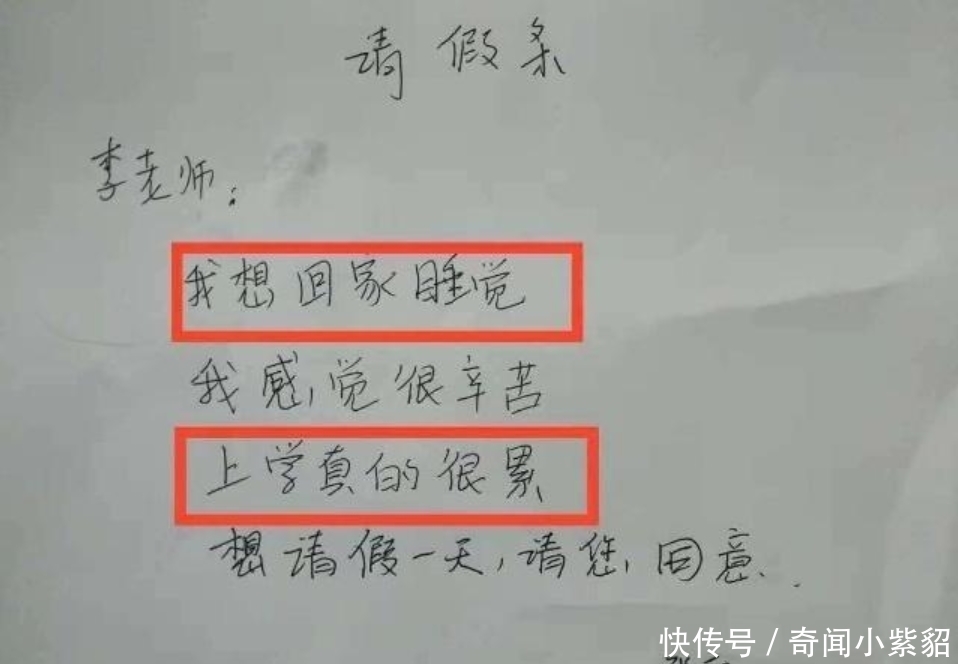 请假条
李老师:
我想回家睡觉
我感觉很辛苦
上学真的很累
想请假一天,请您同意.
快传号 / 奇闻小紫貂